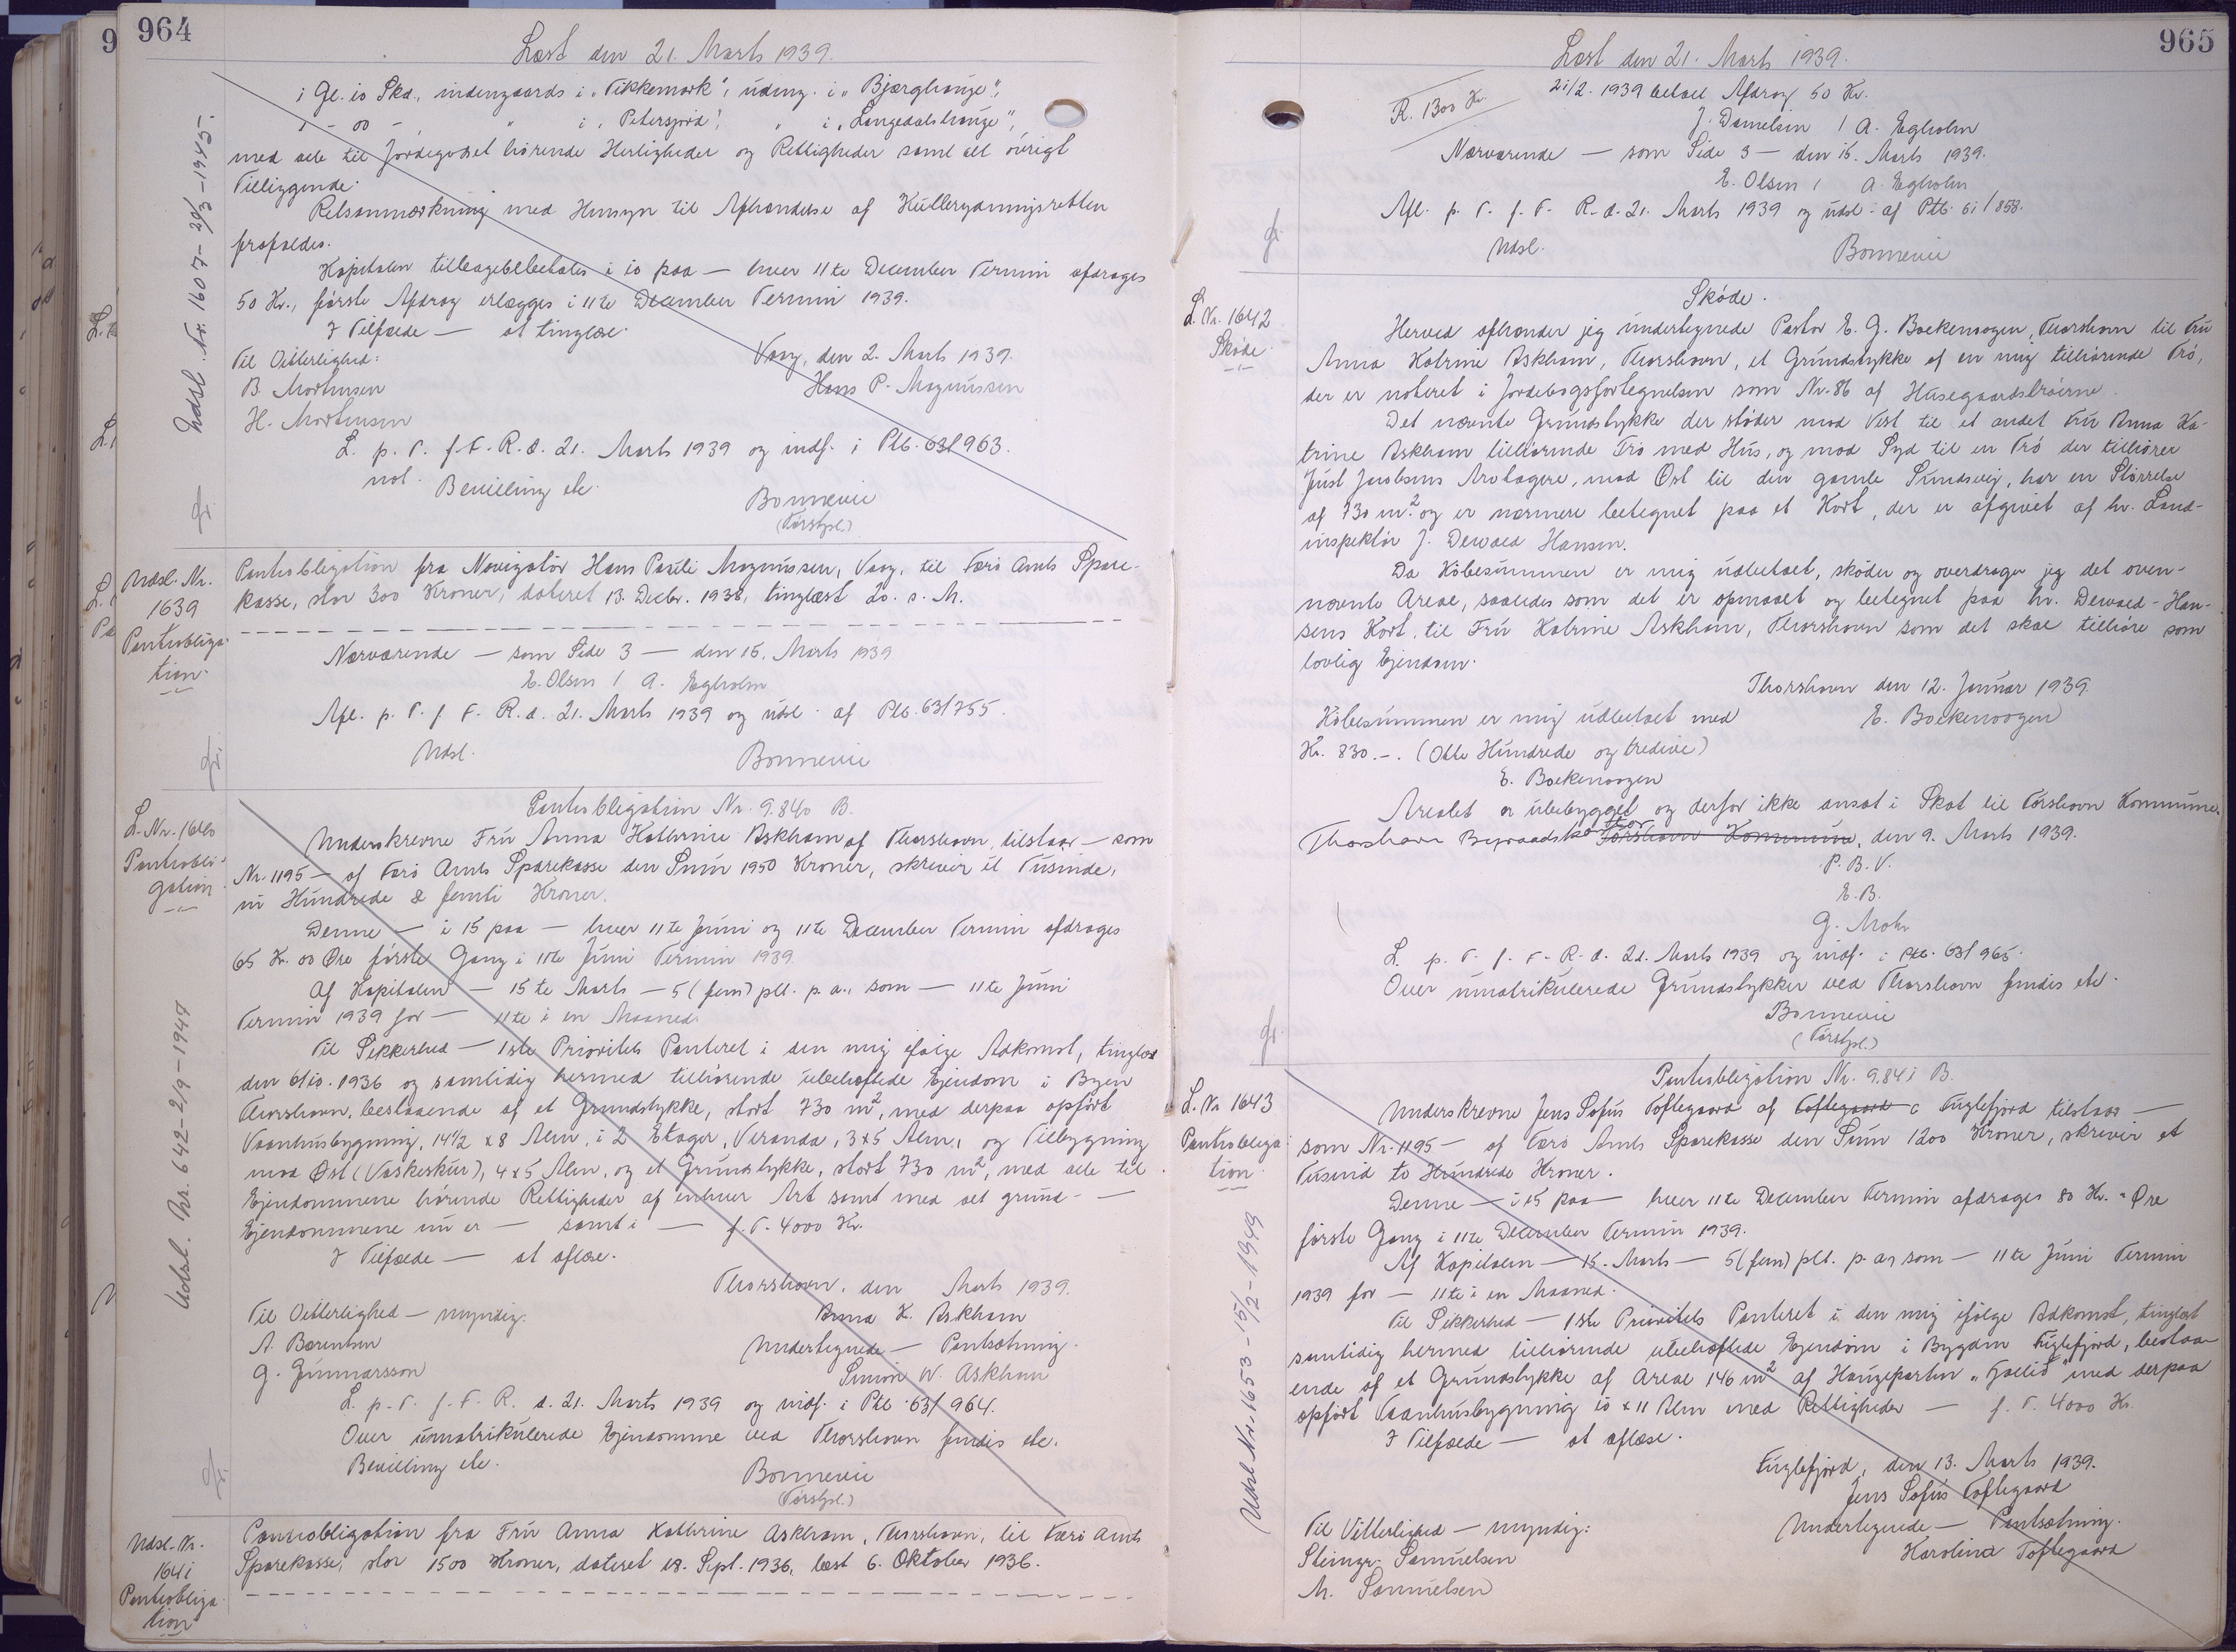 964
Læst den 21. Marts 1939.
i Gl. 10 Skd., indengaards i „Vikkemark“, udmg. i „Bjærghauge“,
1 - 00 - „ i „Petersjord“, „ i „Langedalshauge“,
med alle til Jordegodset hørende Herligheder og Rettigheder samt alt øvrigt
Tilliggende.
Retsanmærkning med Hensyn til Afhændelse af Kulbrydningsretten
frafaldes.
Kapitalen tilbagebetales i 10 paa — hver 11te December Termin afdrages
50 Kr., første Afdrag erlægges i 11te December Termin 1939.
I Tilfælde — at tinglæse.
Til Vitterlighed:
Vaag, den 2. Marts 1939.
B. Morthensen
Hans P. Magnussen
H. Morthensen
L. p. T. f. F. R. d. 21. Marts 1939 og indf. i Ptb. 63/963.
not. Bevilling etc.
Bonnevie
(Førstpl.)
Udsl. Nr. 1607 - 20/3 - 1945.
Udsl. Nr.
1639
Pantobliga-
tion.
Pantobligation fra Navigatør Hans Pauli Magnussen, Vaag, til Færø Amts Spare-
kasse, stor 300 Kroner, dateret 13. Decbr. 1938, tinglæst 20. s. M.
Nærværende — som Side 3 — den 15. Marts 1939
E. Olsen / A. Egholm
Afl. p. T. f. F. R. d. 21. Marts 1939 og udsl. af Ptb. 63/755.
Udsl.
Bonnevie
L. Nr. 1640
Pantobli-
gation
Pantobligation Nr. 9.840 B.
Underskrevne Fru Anna Kathrine Askham af Thorshavn, tilstaar — som
Nr. 1195 — af Færø Amts Sparekasse den Sum 1950 Kroner, skriver et Tusinde,
ni Hundrede & femti Kroner.
Denne — i 15 paa — hver 11te Juni og 11te December Termin afdrages
65 Kr. 00 Øre første Gang i 11te Juni Termin 1939
Af Kapitalen — 15te Marts — 5 (fem) pCt. p. a., som — 11te Juni
Termin 1939 for — 11te i en Maaned.
Til Sikkerhed — 1ste Prioritets Panteret i den mig ifølge Adkomst, tinglæst
den 6/10. 1936 og samtidig hermed tilhørende ubehæftede Ejendom i Byen
Thorshavn, bestaaende af et Grundstykke, stort 730 m², med derpaa opført
Vaanhusbygning, 14½ x 8 Alen, i 2 Etager, Veranda, 3x5 Alen, og Tilbygning
mod Øst (Vaskeskur), 4x5 Alen, og et Grundstykke, stort 730 m², med alle til
Ejendommene hørende Rettigheder af enhver Art samt med alt grund- —
Ejendommene nu er — samt i — f. T. 4000 Kr.
I Tilfælde — at aflæse.
Thorshavn, den Marts 1939.
Til Vitterlighed — myndig.
Anna K. Askham
A. Berentsen
Undertegnede — Pantsætning.
G. Gunnarsson
Simon W. Askham
L. p. T. f. F. R. d. 21. Marts 1939 og indf. i Ptb. 63/964.
Over umatrikulerede Ejendomme ved Thorshavn findes etc.
Bevilling etc.
Bonnevie
(Førstpl.)
Udsl. Nr. 642 - 2/9 - 1947
Udsl. Nr.
1641
Pantobliga-
tion
Pantobligation fra Fru Anna Kathrine Askham, Thorshavn, til Færø Amts
Sparekasse, stor 1500 Kroner, dateret 18. Sept. 1936, læst 6. Oktober 1936.
965
Læst den 21. Marts 1939.
R. 1300 Kr.
21/2. 1939 betalt Afdrag 50 Kr.
J. Danielsen / A. Egholm
Nærværende — som Side 3 — den 15. Marts 1939.
E. Olsen / A. Egholm
Afl. p. T. f. F. R. d. 21. Marts 1939 og udsl. af Ptb. 61/858.
Udsl.
Bonnevie
L. Nr. 1642
Skøde
Skøde.
Herved afhænder jeg undertegnede Pastor E. G. Boekenoogen, Thorshavn til Fru
Anna Katrine Askham, Thorshavn, et Grundstykke af en mig tilhørende Trø,
der er noteret i Jordebogsfortegnelsen som Nr. 86 af Husegaardstrøerne.
Det nævnte Grundstykke der støder mod Vest til et andet Fru Anna Ka-
trine Askham tilhørende Trø med Hus, og mod Syd til en Trø der tilhører
Just Jacobsens Arvtagere, mod Øst til den gamle Sundsvej, har en Størrelse
af 730 m². og er nærmere betegnet paa et Kort, der er afgivet af hr. Land-
inspektør J. Dewald Hansen.
Da Købesummen er mig udbetalt, skøder og overdrager jeg det oven-
nævnte Areal, saaledes som det er opmaalt og betegnet paa hr. Dewald-Han-
sens Kort, til Fru Katrine Askham, Thorshavn som det skal tilhøre som
lovlig Ejendom.
Thorshavn den 12. Januar 1939.
Købesummen er mig udbetalt med
E. Boekenoogen
Kr. 830.-. (Otte Hundrede og tredive)
E. Boekenoogen
Arealet er ubebygget og derfor ikke ansat i Skat til Tórshavn Kommune.
Thorshavn Byraadskontor Tórshavn Kommune, den 9. Marts 1939.
P. B. V.
E. B.
G. Mohr
L. p. T. f. F. R. d. 21. Marts 1939 og indf. i Ptb. 63/965.
Over umatrikulerede Grundstykker ved Thorshavn findes etc.
Bonnevie
(Førstpl.)
L. Nr 1643
Pantobliga-
tion
Pantobligation Nr. 9.841 B.
Underskrevne Jens Sofus Toftegaard af Toftegaard c Fuglefjord tilstaar —
som Nr. 1195 — af Færø Amts Sparekasse den Sum 1200 Kroner, skriver et
Tusind to Hundrede Kroner.
Denne — i 15 paa — hver 11te December Termin afdrages 80 Kr. „ Øre
første Gang i 11te December Termin 1939.
Af Kapitalen — 15. Marts — 5 (fem) pCt. p. a., som — 11te Juni Termin
1939 for — 11te i en Maaned.
Til Sikkerhed — 1ste Prioritets Panteret i den mig ifølge Adkomst, tinglæst
samtidig hermed tilhørende ubehæftede Ejendom i Bygden Fuglefjord, bestaa-
ende af et Grundstykke af Areal 146 m² af Haugeparten „Gallið“ med derpaa
opført Vaanhusbygning 10 x 11 Alen med Rettigheder — f. T. 4000 Kr.
I Tilfælde — at aflæse.
Fuglefjord, den 13. Marts 1939.
Jens Sofus Toftegaard
Til Vitterlighed — myndig:
Undertegnede — Pantsætning.
Steingr. Samuelsen
Karolina Toftegaard
M. Samuelsen
Udsl. Nr. 1653 - 15/2 - 1949